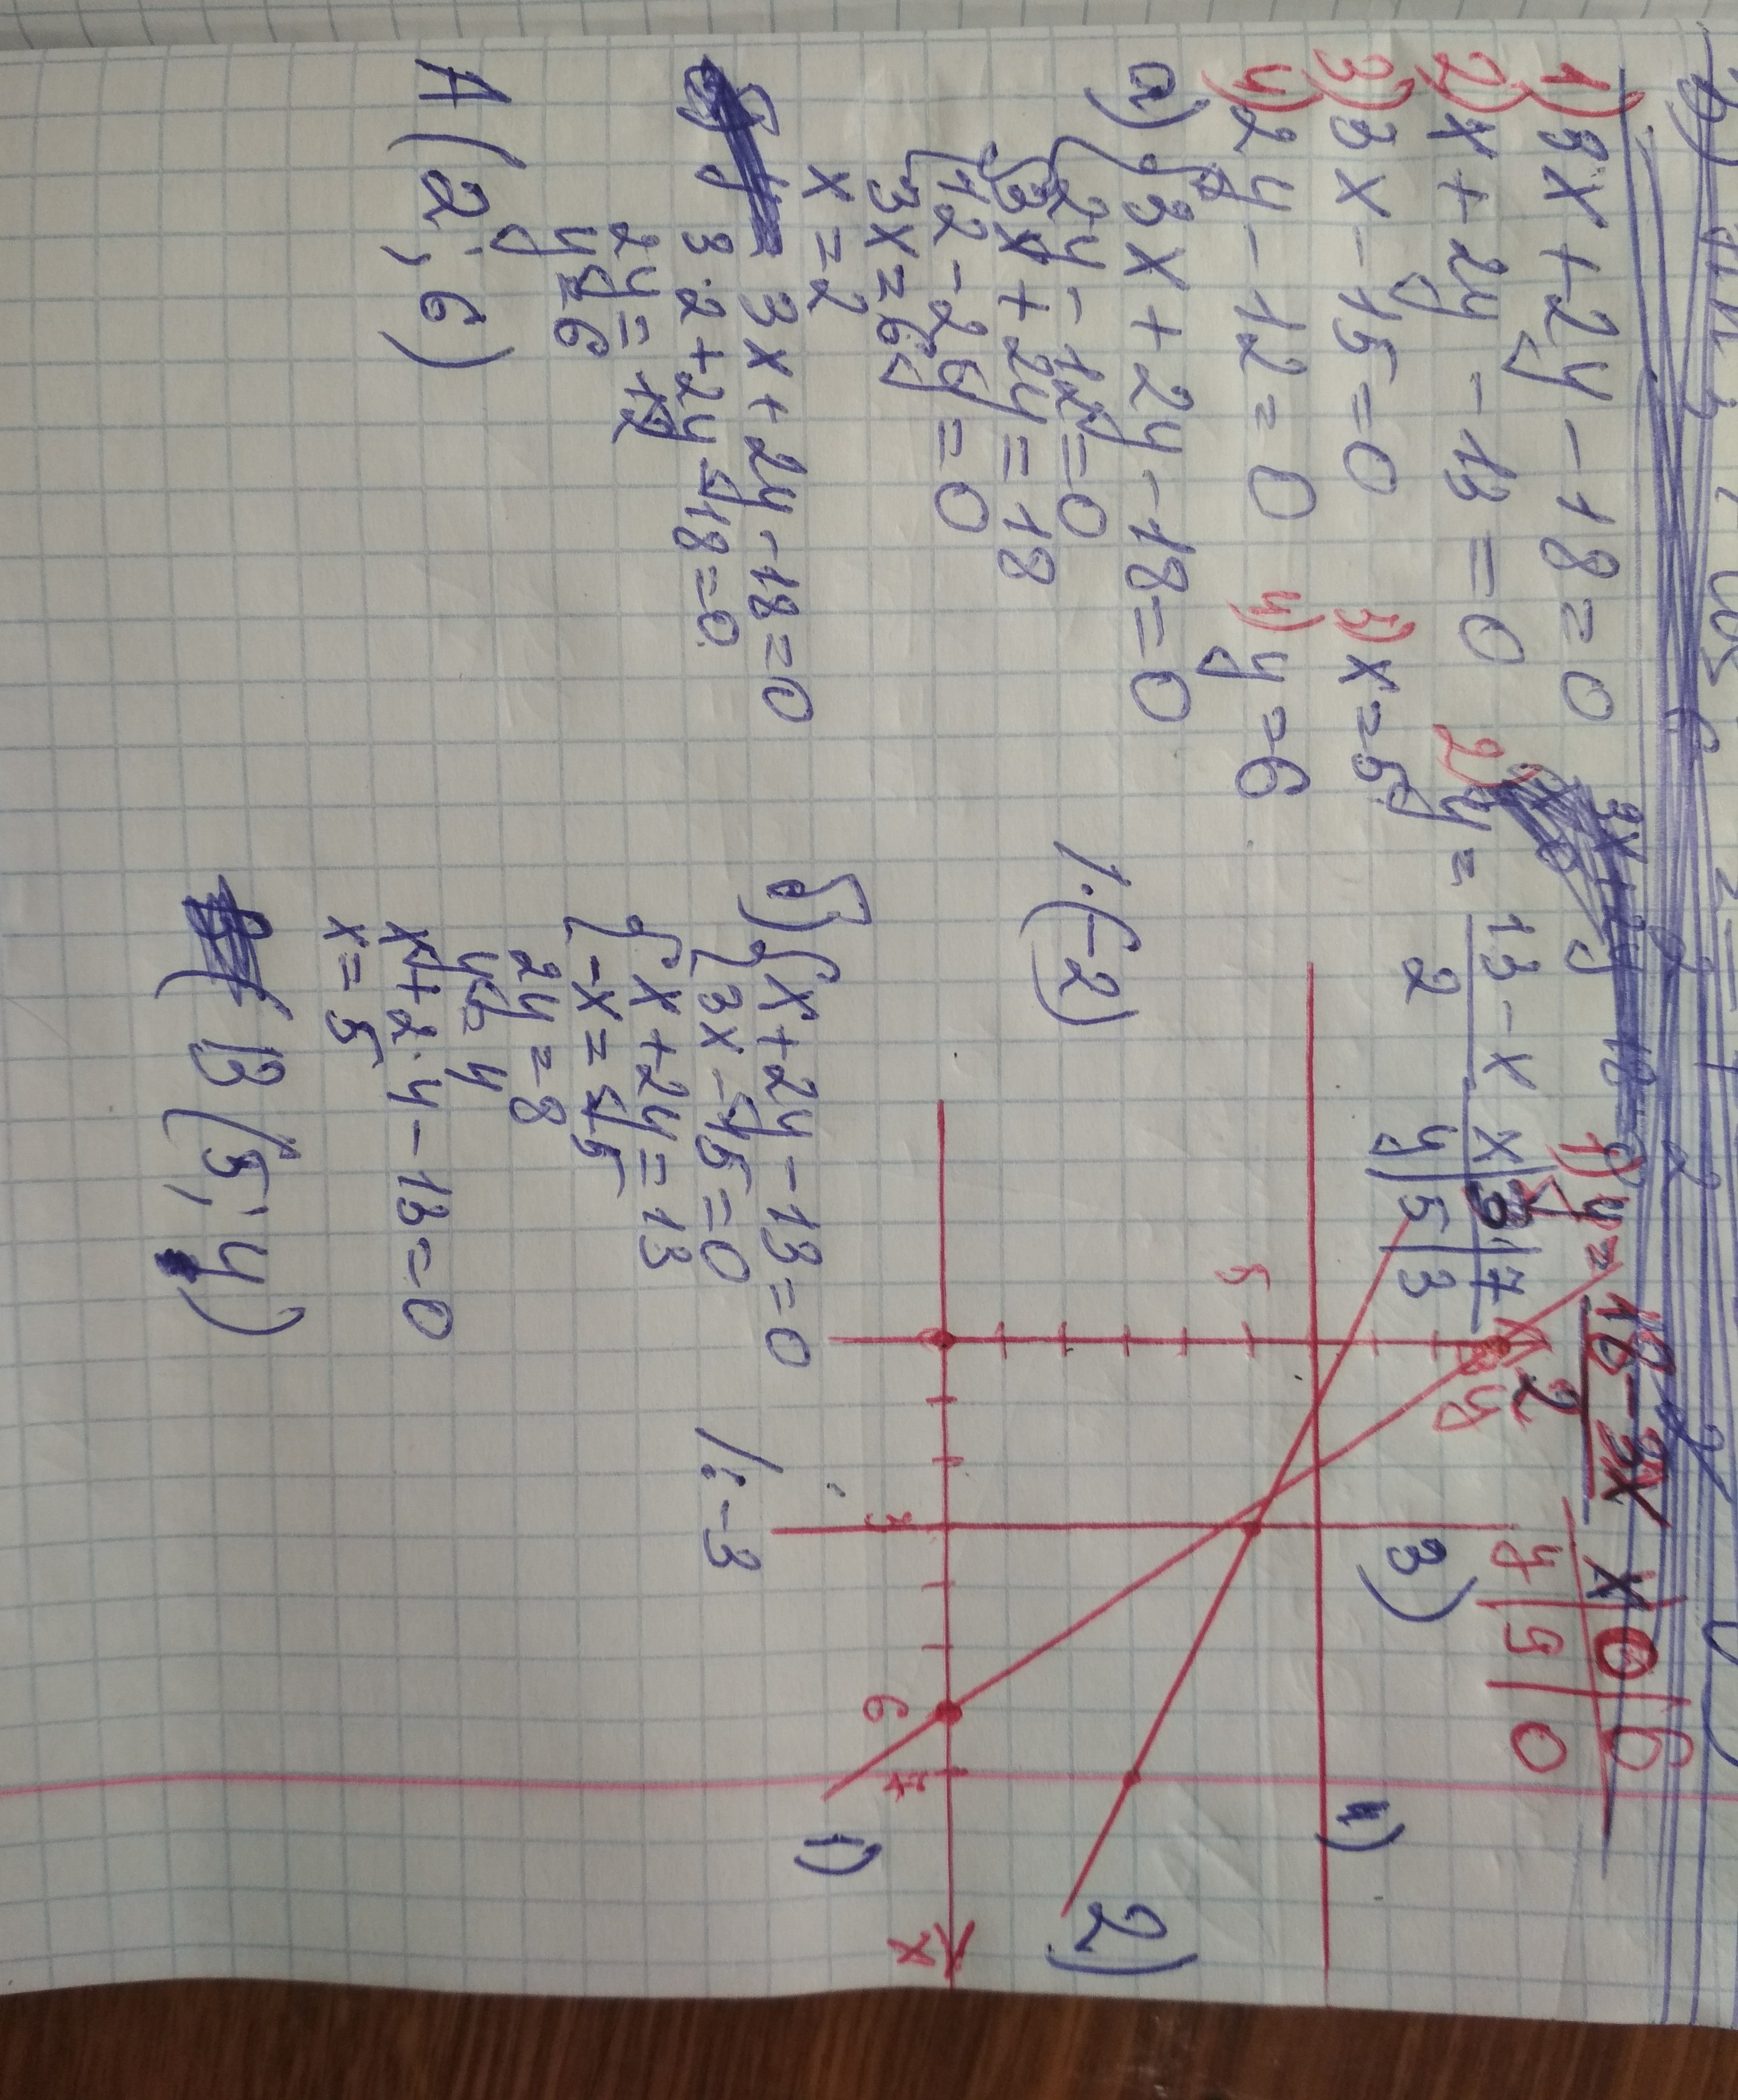 1) 3x + 2y - 18 = 0
2) x + 2y - 13 = 0
3) 3x - 15 = 0
4) 2y - 12 = 0
3) x = 5
4) y = 6
2) y = 13 - x / 2
x | 3 | 7
y | 5 | 3
1) y = 18 - 3x / 2
x | 0 | 6
y | 9 | 0
а) { 3x + 2y - 18 = 0
{ 2y - 12 = 0 / · (-2)
{ 3x + 2y = 18
{ 12 - 2y = 0
3x = 6
x = 2
3x + 2y - 18 = 0
3 · 2 + 2y - 18 = 0
2y = 12
y = 6
A (2; 6)
y
5
3
6
7
x
3)
4)
1)
2)
б) { x + 2y - 13 = 0
{ 3x - 15 = 0 / : -3
{ x + 2y = 13
{ -x = -5
2y = 8
y = 4
x + 2 · 4 - 13 = 0
x = 5
B (5; 4)